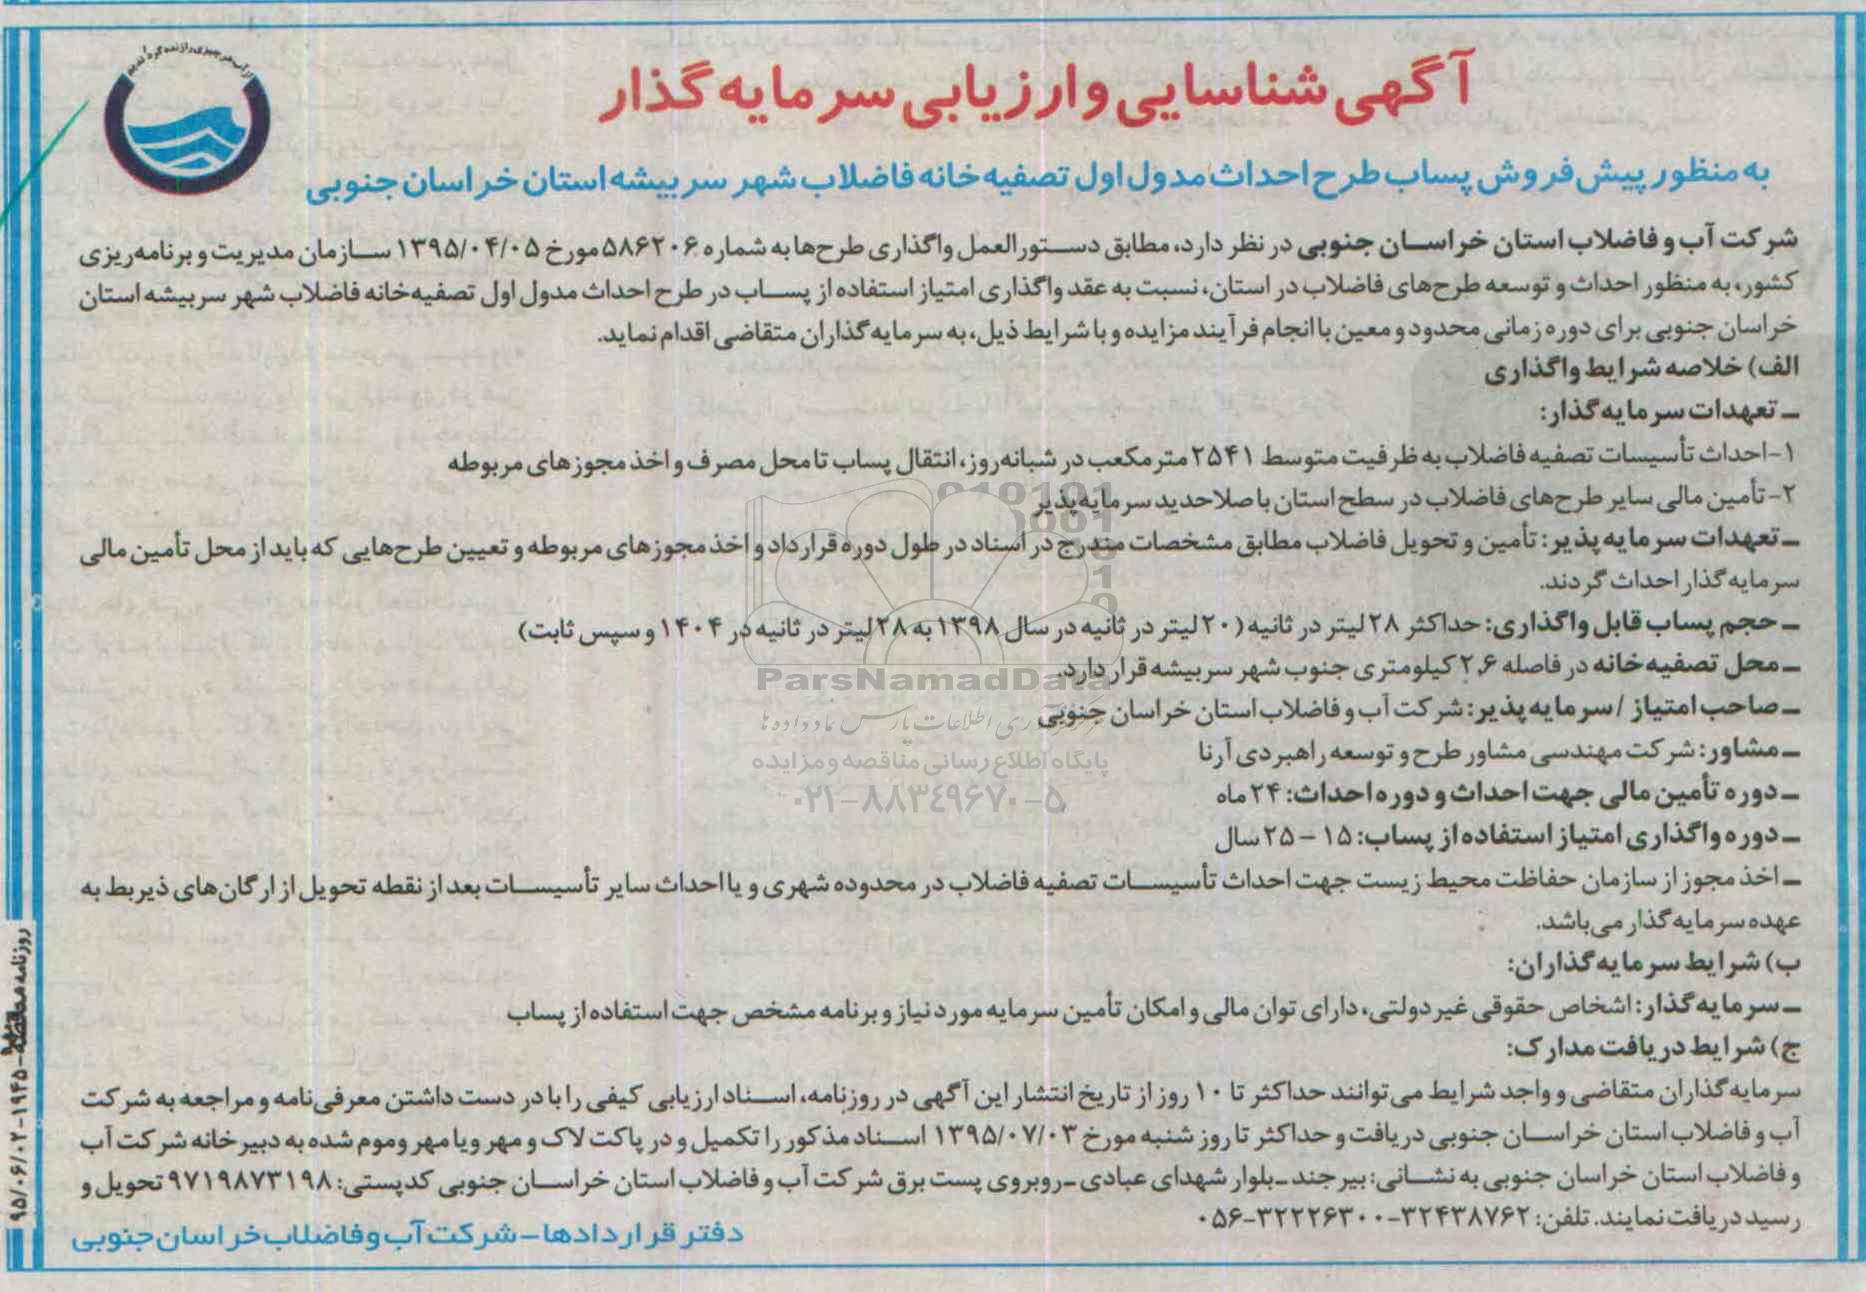 از آب هر چیزی را زنده گردانیدیم
آگهی شناسایی و ارزیابی سرمایه گذار
به منظور پیش فروش پساب طرح احداث مدول اول تصفیه خانه فاضلاب شهر سربیشه استان خراسان جنوبی
شرکت آب و فاضلاب استان خراسان جنوبی در نظر دارد، مطابق دستورالعمل واگذاری طرح‌ها به شماره ۵۸۶۲۰۶ مورخ ۱۳۹۵/۰۴/۰۵ سازمان مدیریت و برنامه‌ریزی
کشور، به منظور احداث و توسعه طرح‌های فاضلاب در استان، نسبت به عقد واگذاری امتیاز استفاده از پساب در طرح احداث مدول اول تصفیه‌خانه فاضلاب شهر سربیشه استان
خراسان جنوبی برای دوره زمانی محدود و معین با انجام فرآیند مزایده و با شرایط ذیل، به سرمایه‌گذاران متقاضی اقدام نماید.
الف) خلاصه شرایط واگذاری
ـ تعهدات سرمایه‌گذار:
۱-احداث تأسیسات تصفیه فاضلاب به ظرفیت متوسط ۲۵۴۱ مترمکعب در شبانه‌روز، انتقال پساب تا محل مصرف و اخذ مجوزهای مربوطه
۲- تأمین مالی سایر طرح‌های فاضلاب در سطح استان با صلاحدید سرمایه‌پذیر
ـ تعهدات سرمایه پذیر: تأمین و تحویل فاضلاب مطابق مشخصات مندرج در اسناد در طول دوره قرارداد و اخذ مجوزهای مربوطه و تعیین طرح‌هایی که باید از محل تأمین مالی
سرمایه گذار احداث گردند.
ـ حجم پساب قابل واگذاری: حداکثر ۲۸ لیتر در ثانیه (۲۰ لیتر در ثانیه در سال ۱۳۹۸ به ۲۸ لیتر در ثانیه در ۱۴۰۴ و سپس ثابت)
ـ محل تصفیه‌خانه در فاصله ۲٫۶ کیلومتری جنوب شهر سربیشه قرار دارد.
ParsNamadData
ـ صاحب امتیاز / سرمایه پذیر: شرکت آب و فاضلاب استان خراسان جنوبی
ـ مشاور: شرکت مهندسی مشاور طرح و توسعه راهبردی آرنا
پایگاه اطلاع رسانی مناقصه و مزایده
ـ دوره تأمین مالی جهت احداث و دوره احداث: ۲۴ ماه
۰۲۱-۸۸۳۴۹۶۷۰-۵
ـ دوره واگذاری امتیاز استفاده از پساب: ۱۵ - ۲۵ سال
ـ اخذ مجوز از سازمان حفاظت محیط زیست جهت احداث تأسیسات تصفیه فاضلاب در محدوده شهری و یا احداث سایر تأسیسات بعد از نقطه تحویل از ارگان‌های ذیربط به
عهده سرمایه گذار می‌باشد.
ب) شرایط سرمایه‌گذاران:
ـ سرمایه‌گذار: اشخاص حقوقی غیردولتی، دارای توان مالی و امکان تأمین سرمایه مورد نیاز و برنامه مشخص جهت استفاده از پساب
ج) شرایط دریافت مدارک:
سرمایه گذاران متقاضی و واجد شرایط می‌توانند حداکثر تا ۱۰ روز از تاریخ انتشار این آگهی در روزنامه، اسناد ارزیابی کیفی را با در دست داشتن معرفی‌نامه و مراجعه به شرکت
آب و فاضلاب استان خراسان جنوبی دریافت و حداکثر تا روز شنبه مورخ ۱۳۹۵/۰۷/۰۳ اسناد مذکور را تکمیل و در پاکت لاک و مهر و یا مهر و موم شده به دبیرخانه شرکت آب
و فاضلاب استان خراسان جنوبی به نشانی: بیرجند ـ بلوار شهدای عبادی ـ روبروی پست برق شرکت آب و فاضلاب استان خراسان جنوبی کدپستی: ۹۷۱۹۸۷۳۱۹۸ تحویل و
رسید دریافت نمایند. تلفن: ۳۲۴۳۸۷۶۲-۰۵۶-۳۲۲۲۶۳۰۰
دفتر قراردادها - شرکت آب و فاضلاب خراسان جنوبی
۹۵/۰۶/۰۲-۱۹۴۵- روزنامه